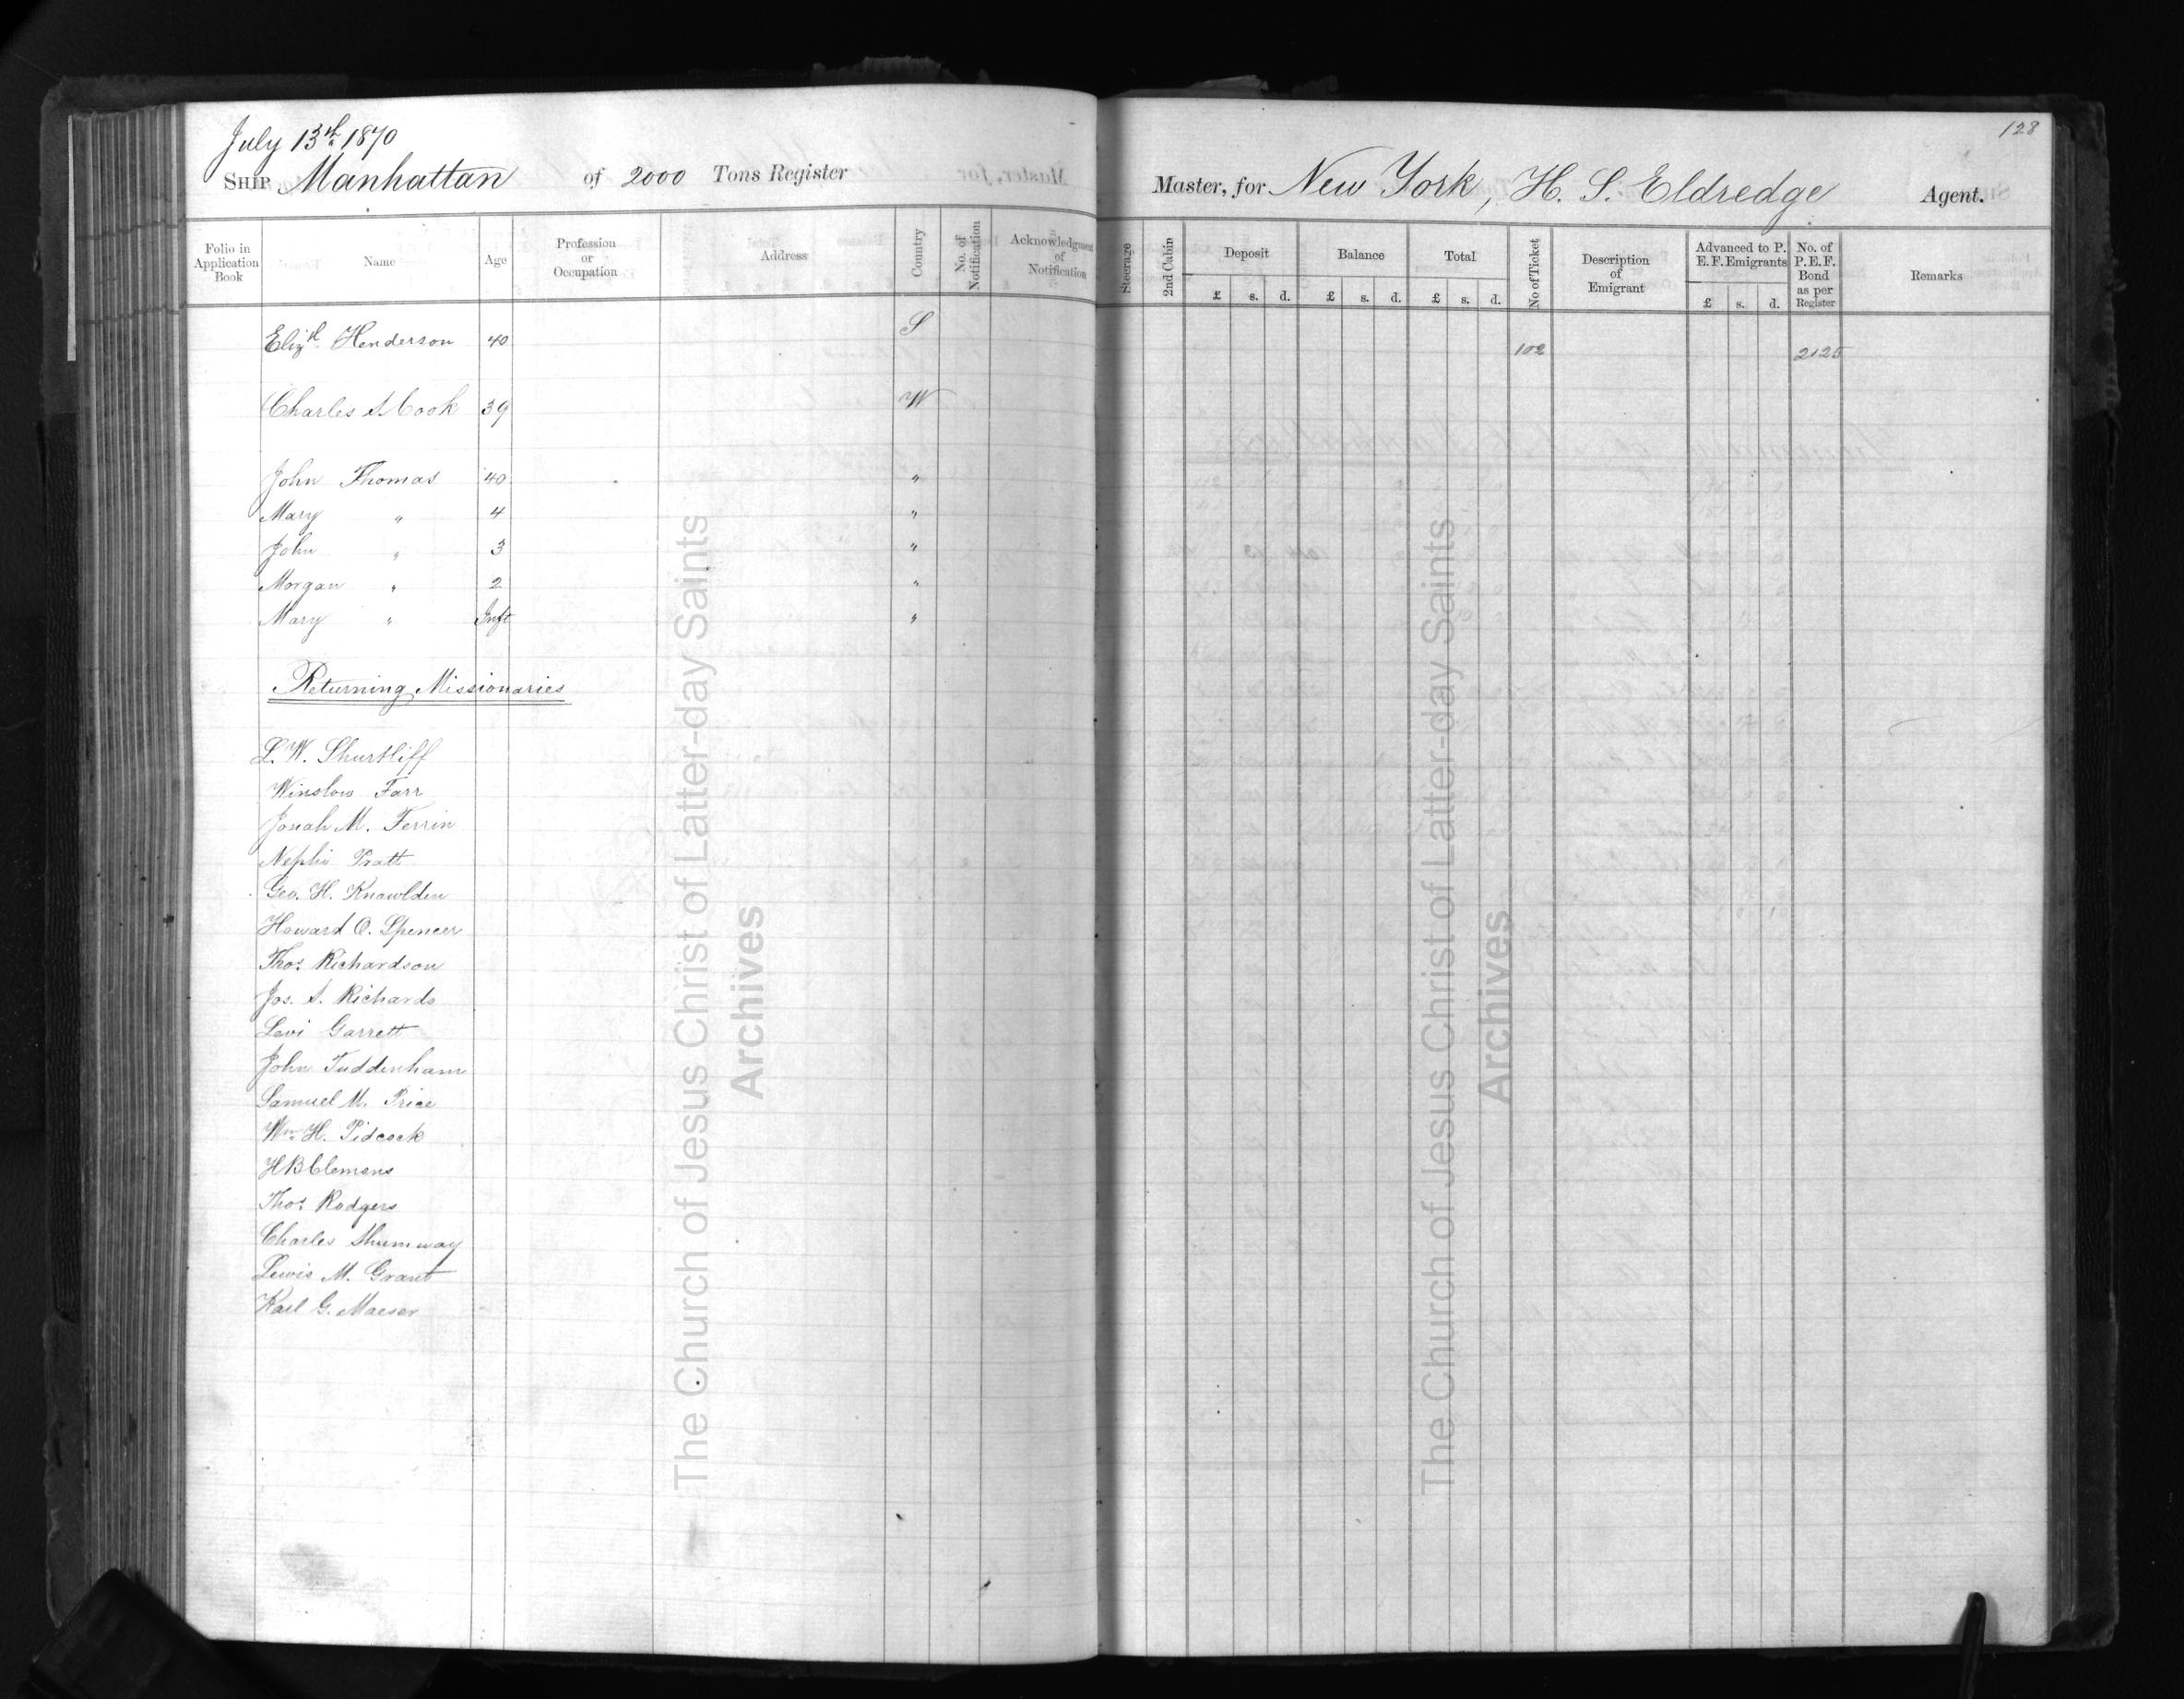 128
July 13th 1870
SHIP Manhattan of 2000 Tons Register Master, for New York, H. S. Eldredge Agent.
Folio in Application Book Name Age Profession or Occupation Address Country No. of Notification Acknowledgment of Notification Steerage 2nd Cabin Deposit £ s. d. Balance £ s. d. Total £ s. d. No of Ticket Description of Emigrant Advanced to P. E. F. Emigrants £ s. d. No. of P. E. F. Bond as per Register Remarks
Elizth Henderson 40 S 102 2125
Charles S. Cook 39 W
John Thomas 40 "
Mary " 4 "
John " 3 "
Morgan " 2 "
Mary " Inft "
Returning Missionaries
L. W. Shurtliff
Winslow Farr
Josiah M. Ferrin
Nephi Pratt
Geo. H. Knowlden
Howard O. Spencer
Thos. Richardson
Jos. S. Richards
Levi Garrett
John Tuddenham
Samuel M. Price
Wm. H. Pidcock
H B Clemens
Thos. Rodgers
Charles Shumway
Lewis M. Grant
Karl G. Maeser
The Church of Jesus Christ of Latter-day Saints
Archives
The Church of Jesus Christ of Latter-day Saints
Archives